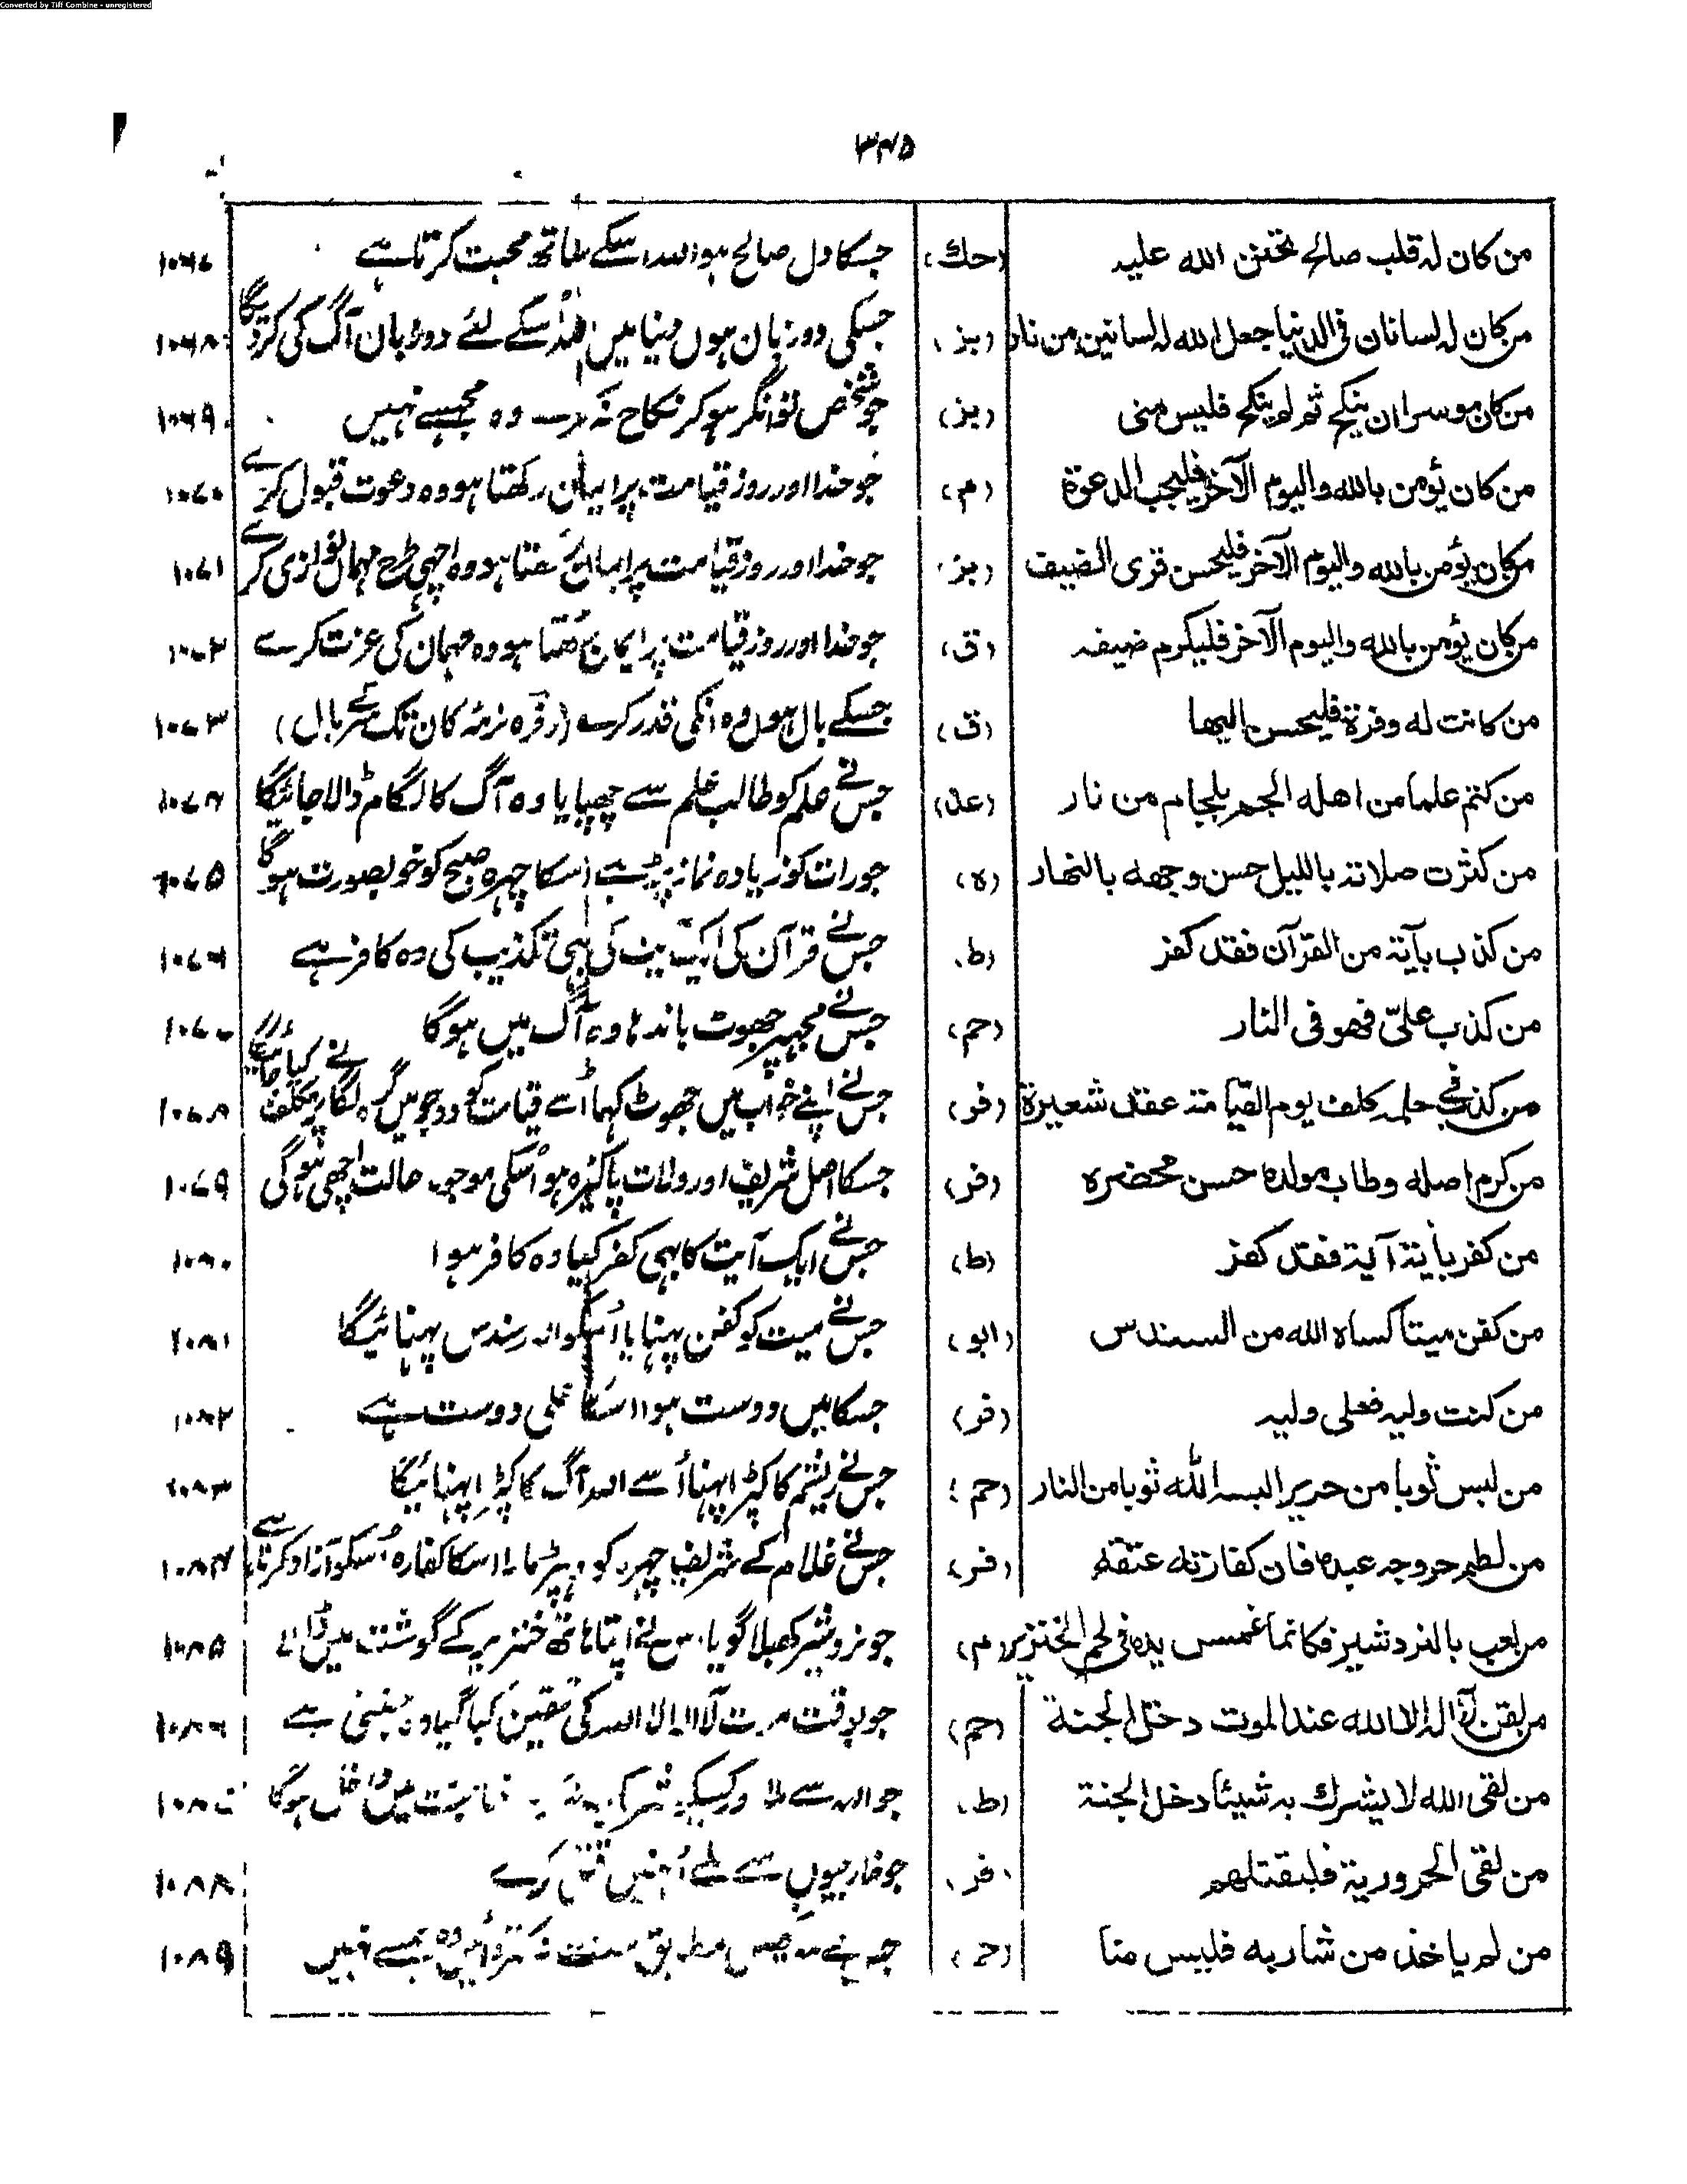 Converted by Tiff Combine - unregistered
۳۴۵
من كان له قلب صالح تحنن الله عليه (حك) جسکا دل صالح ہو اللہ اسکے ساتھ محبت کرتا ہے ۱۰۶۷
من كان له لسانان فى الدنيا جعل الله له لسانين من نار (بز) جسکی دو زبان ہوں دنیا میں اللہ اسکے لئے دو زبان آگ کی کردیگا ۱۰۶۸
من كان موسرا ان ينكح ثم لم ينكح فليس منى (بز) جو شخص توانگر ہو کر نکاح نہ کرے وہ مجھسے نہیں ۱۰۶۹
من كان يؤمن بالله واليوم الآخر فليجب الدعوة (م) جو خدا اور روز قیامت پر ایمان رکھتا ہو وہ دعوت قبول کرے ۱۰۷۰
من كان يؤمن بالله واليوم الآخر فليحسن قرى الضيف (بز) جو خدا اور روز قیامت پر ایمان رکھتا ہو وہ اچھی طرح مہمان نوازی کرے ۱۰۷۱
من كان يؤمن بالله واليوم الآخر فليكرم ضيفه (ق) جو خدا اور روز قیامت پر ایمان رکھتا ہو وہ مہمان کی عزت کرے ۱۰۷۲
من كانت له وفرة فليحسن اليها (ق) جسکے بال ہوں وہ انکی قدر کرے (وفرہ نرمۂ کان تک کے بال) ۱۰۷۳
من كتم علما من اهله الجم بلجام من نار (عد) جس نے علم کو طالب علم سے چھپایا وہ آگ کا لگام ڈالا جائیگا ۱۰۷۴
من كثرت صلاته بالليل حسن وجهه بالنهار (ه) جو رات کو زیادہ نماز پڑہے اسکا چہرہ صبح کو خوبصورت ہوگا ۱۰۷۵
من كذب بآية من القرآن فقد كفر (ط) جس نے قرآن کی ایک آیت کی بہی تکذیب کی وہ کافر ہے ۱۰۷۶
من كذب علىّ فهو فى النار (حم) جس نے مجہپر جھوٹ باندہا وہ آگ میں ہوگا ۱۰۷۷
من كذب فى حلمه كلف يوم القيامة عقد شعيرة (فر) جس نے اپنے خواب میں جھوٹ کہا اُسے قیامت کو دو جو میں گرہ لگانے پر مکلف کیا جائیگا ۱۰۷۸
من كرم اصله وطاب مولده حسن محضره (فر) جسکا اصل شریف اور ولادت پاکیزہ ہو اُسکی موجودہ حالت اچھی ہوگی ۱۰۷۹
من كفر بأية آية فقد كفر (ط) جس نے ایک آیت کا بہی کفر کیا وہ کافر ہوا ۱۰۸۰
من كفن ميتا كساه الله من السندس (ابو) جس نے میت کو کفن پہنایا اُسکو اللہ سندس پہنائیگا ۱۰۸۱
من كنت وليه فعلى وليه (فر) جسکا میں دوست ہوا اسکا علی دوست ہے ۱۰۸۲
من لبس ثوبا من حرير البسه الله ثوبا من النار (حم) جس نے ریشم کا کپڑا پہنا اُسے اللہ آگ کا کپڑا پہنائیگا ۱۰۸۳
من لطم حر وجه عبده فان كفارته عتقه (فر) جس نے غلام کے شریف چہرہ کو تہپڑ مارا اسکا کفارہ اُسکو آزاد کرنا ہے ۱۰۸۴
من لعب بالنردشير فكانما غمس يده فى لحم الخنزير (م) جو نردشیر کھیلا گویا اس نے اپنا ہاتھ خنزیر کے گوشت میں ڈالا ۱۰۸۵
من لقن لا اله الا الله عند الموت دخل الجنة (حم) جو بوقت موت لا الہ الا اللہ کی تلقین کیا گیا وہ جنتی ہے ۱۰۸۶
من لقى الله لا يشرك به شيئا دخل الجنة (ط) جو اللہ سے ملا اور کسیکو شریک نہ جنت میں داخل ہوگا ۱۰۸۷
من لقى الحرورية فليقتلهم (فر) جو خارجیوں سے ملے اُنہیں قتل کرے ۱۰۸۸
من لم ياخذ من شاربه فليس منا (حم) مطابق سنت نہ کتروائیں وہ ہمسے نہیں ۱۰۸۹